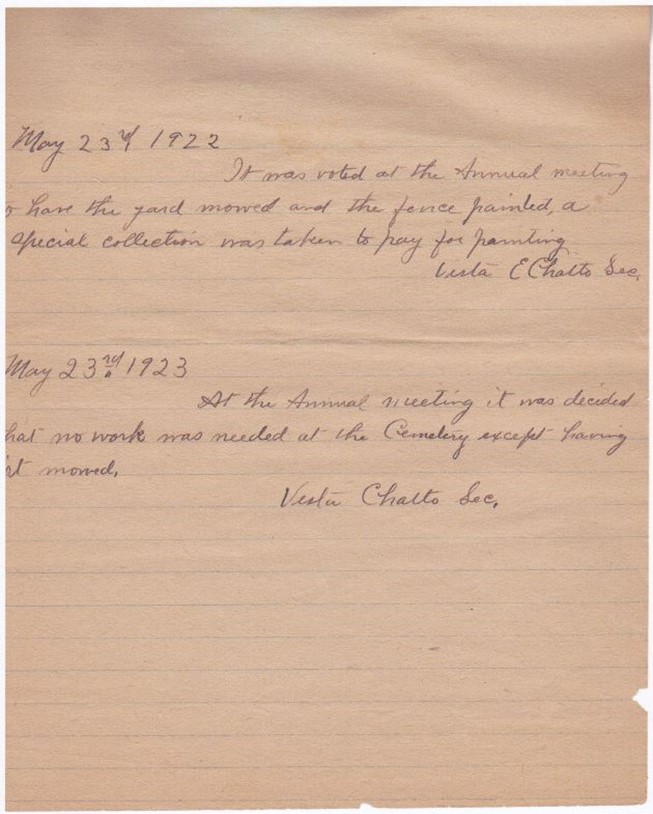 May 23rd 1922
It was voted at the Annual meeting
o have the yard mowed and the fence painted, a
special collection was taken to pay for painting
Vesta E Chatto Sec.
May 23rd 1923
At the Annual meeting it was decided
hat no work was needed at the Cemetery except having
it mowed.
Vesta Chatto Sec.